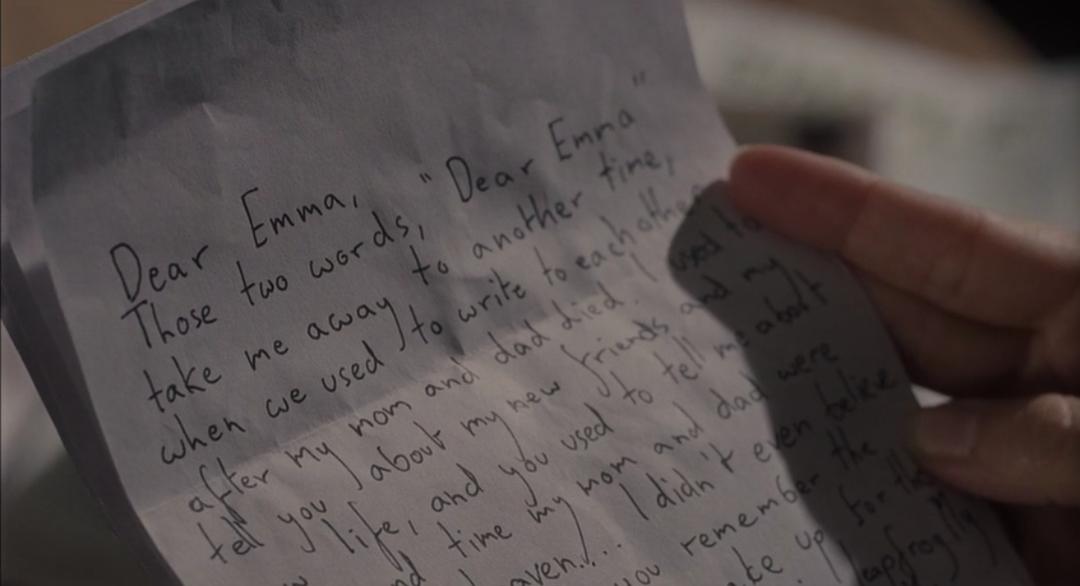 Dear Emma,
Those two words, "Dear Emma"
take me away to another time,
when we used to write to each other
after my mom and dad died. I used to
tell you about my new friends and my
life, and you used to tell me about
time my mom and dad were
I didn't even believe
you remember the
up for the
leapfrog